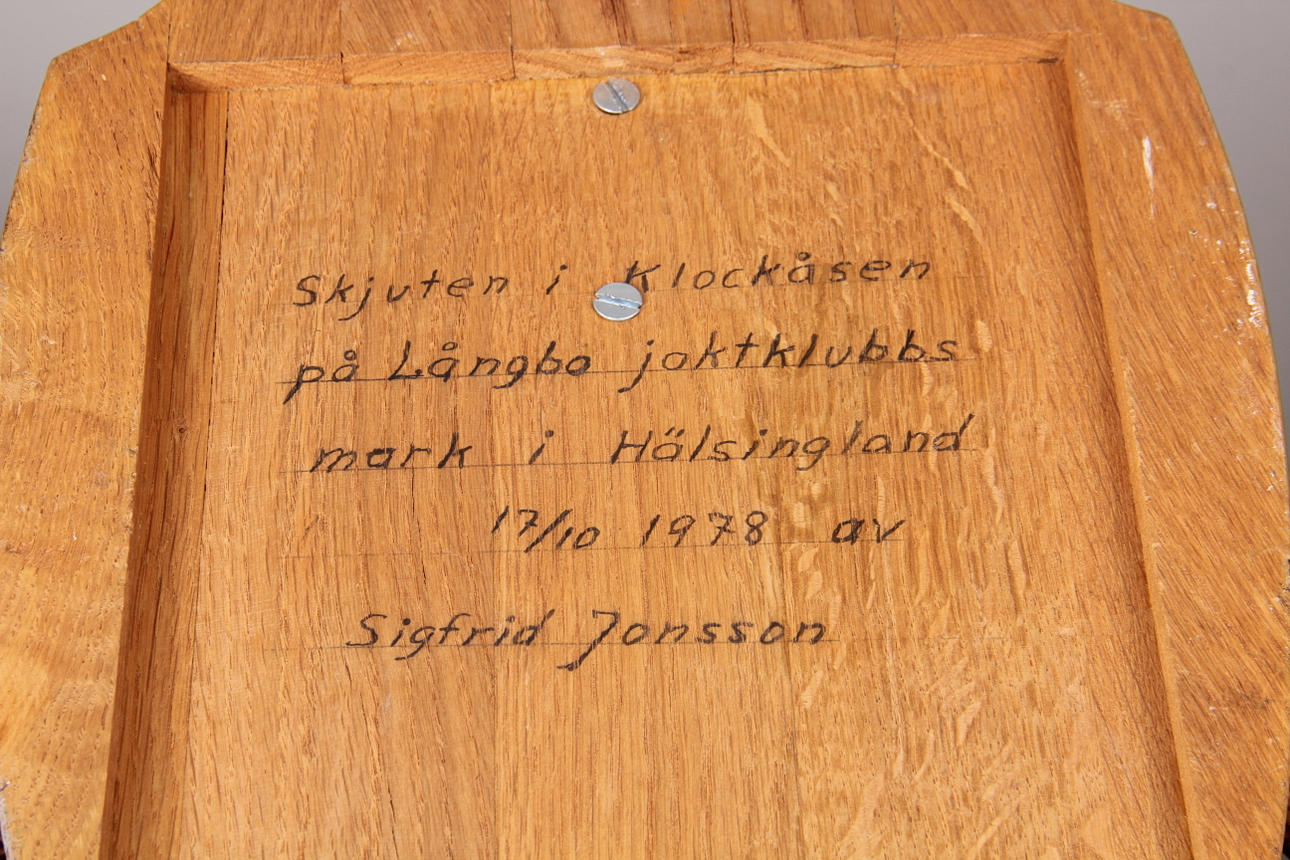 Skjuten i Klockåsen
på Långbo jaktklubbs
mark i Hälsingland
17/10 1978 av
Sigfrid Jonsson